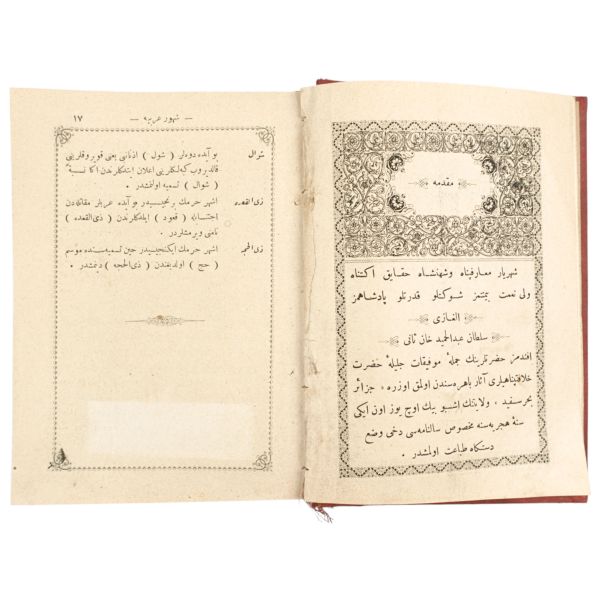 مقدمه
شهریار معارفپناه وشهنشاه حقایق اکتناه
ولی نعمت بیمنتمز شوکتلو قدرتلو پادشاهمز
الغازی
سلطان عبدالحمید خان ثانی
افندمز حضرتلرینك جملهٔ موفقیات جلیلهٔ حضرت
خلافتپناهیلری آثار باهره سندن اولمق اوزره ، جزائر
بحر سفید ، ولایتنك اشبو بیك اوچ یوز اون ایکی
سنهٔ هجریه سنه مخصوص سالنامه سی دخی وضع
دستکاه طباعت اولمشدر .
— شهور عربیه — ١٧
شوال بو آیده دوه لر ( شول ) اذنابی یعنی قویروقلرینی
قالدیروب کبه لکلرینی اعلان ایتدکلرندن اکا نسبة
( شوال ) تسمیه اولنمشدر .
ذی القعده اشهر حرمك برنجیسیدر بو آیده عربلر مقاتله دن
اجتنابله ( قعود ) ایتدکلرندن ( ذی القعده )
نامنی ویرمشلردر .
ذی الحجه اشهر حرمك ایکنجیسیدر حین تسمیه سنده موسم
( حج ) اولدیغندن ( ذی الحجه ) دنمشدر .